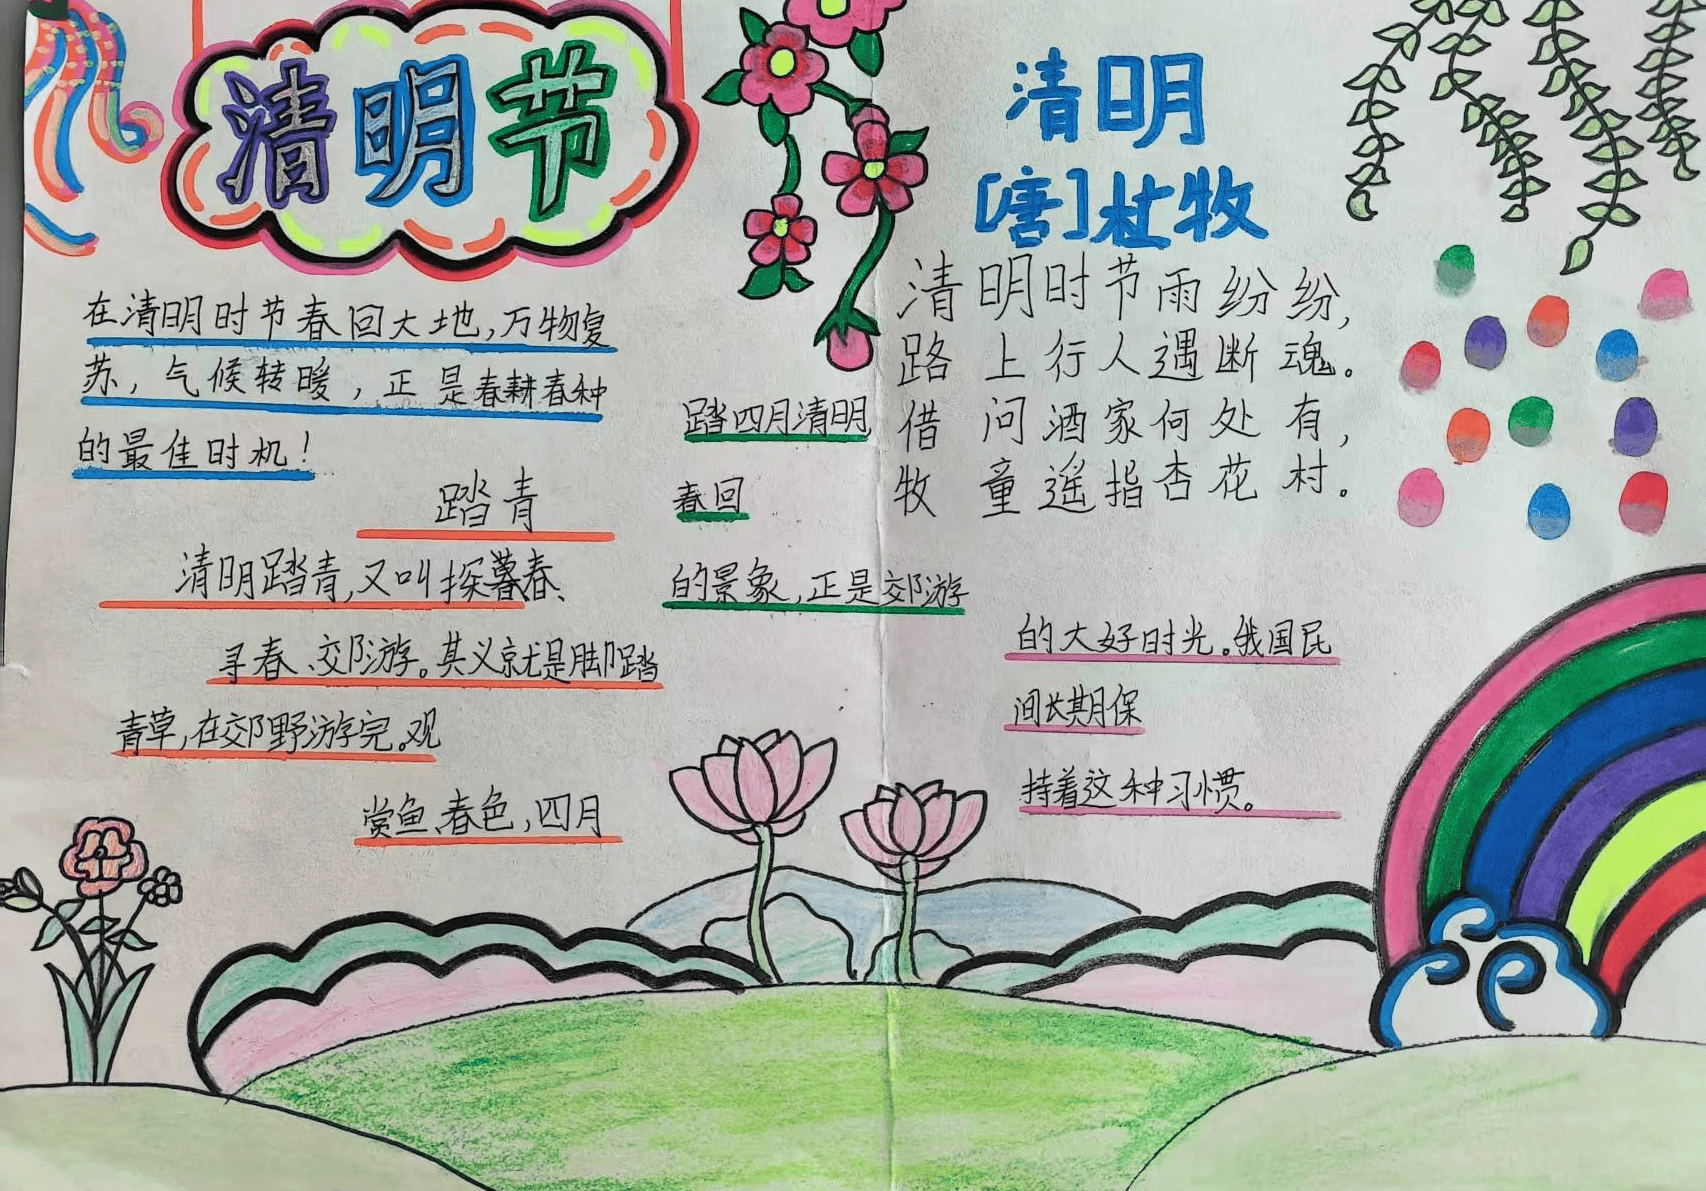 清明节
在清明时节春回大地,万物复
苏,气候转暖,正是春耕春种
的最佳时机!
踏青
清明踏青,又叫探春、
寻春、郊游。其义就是脚踏
青草,在郊野游完。观
赏鱼、春色,四月
踏四月清明
春回
的景象,正是郊游
清明
[唐]杜牧
清明时节雨纷纷,
路上行人遇断魂。
借问酒家何处有,
牧童遥指杏花村。
的大好时光。我国民
间长期保
持着这种习惯。